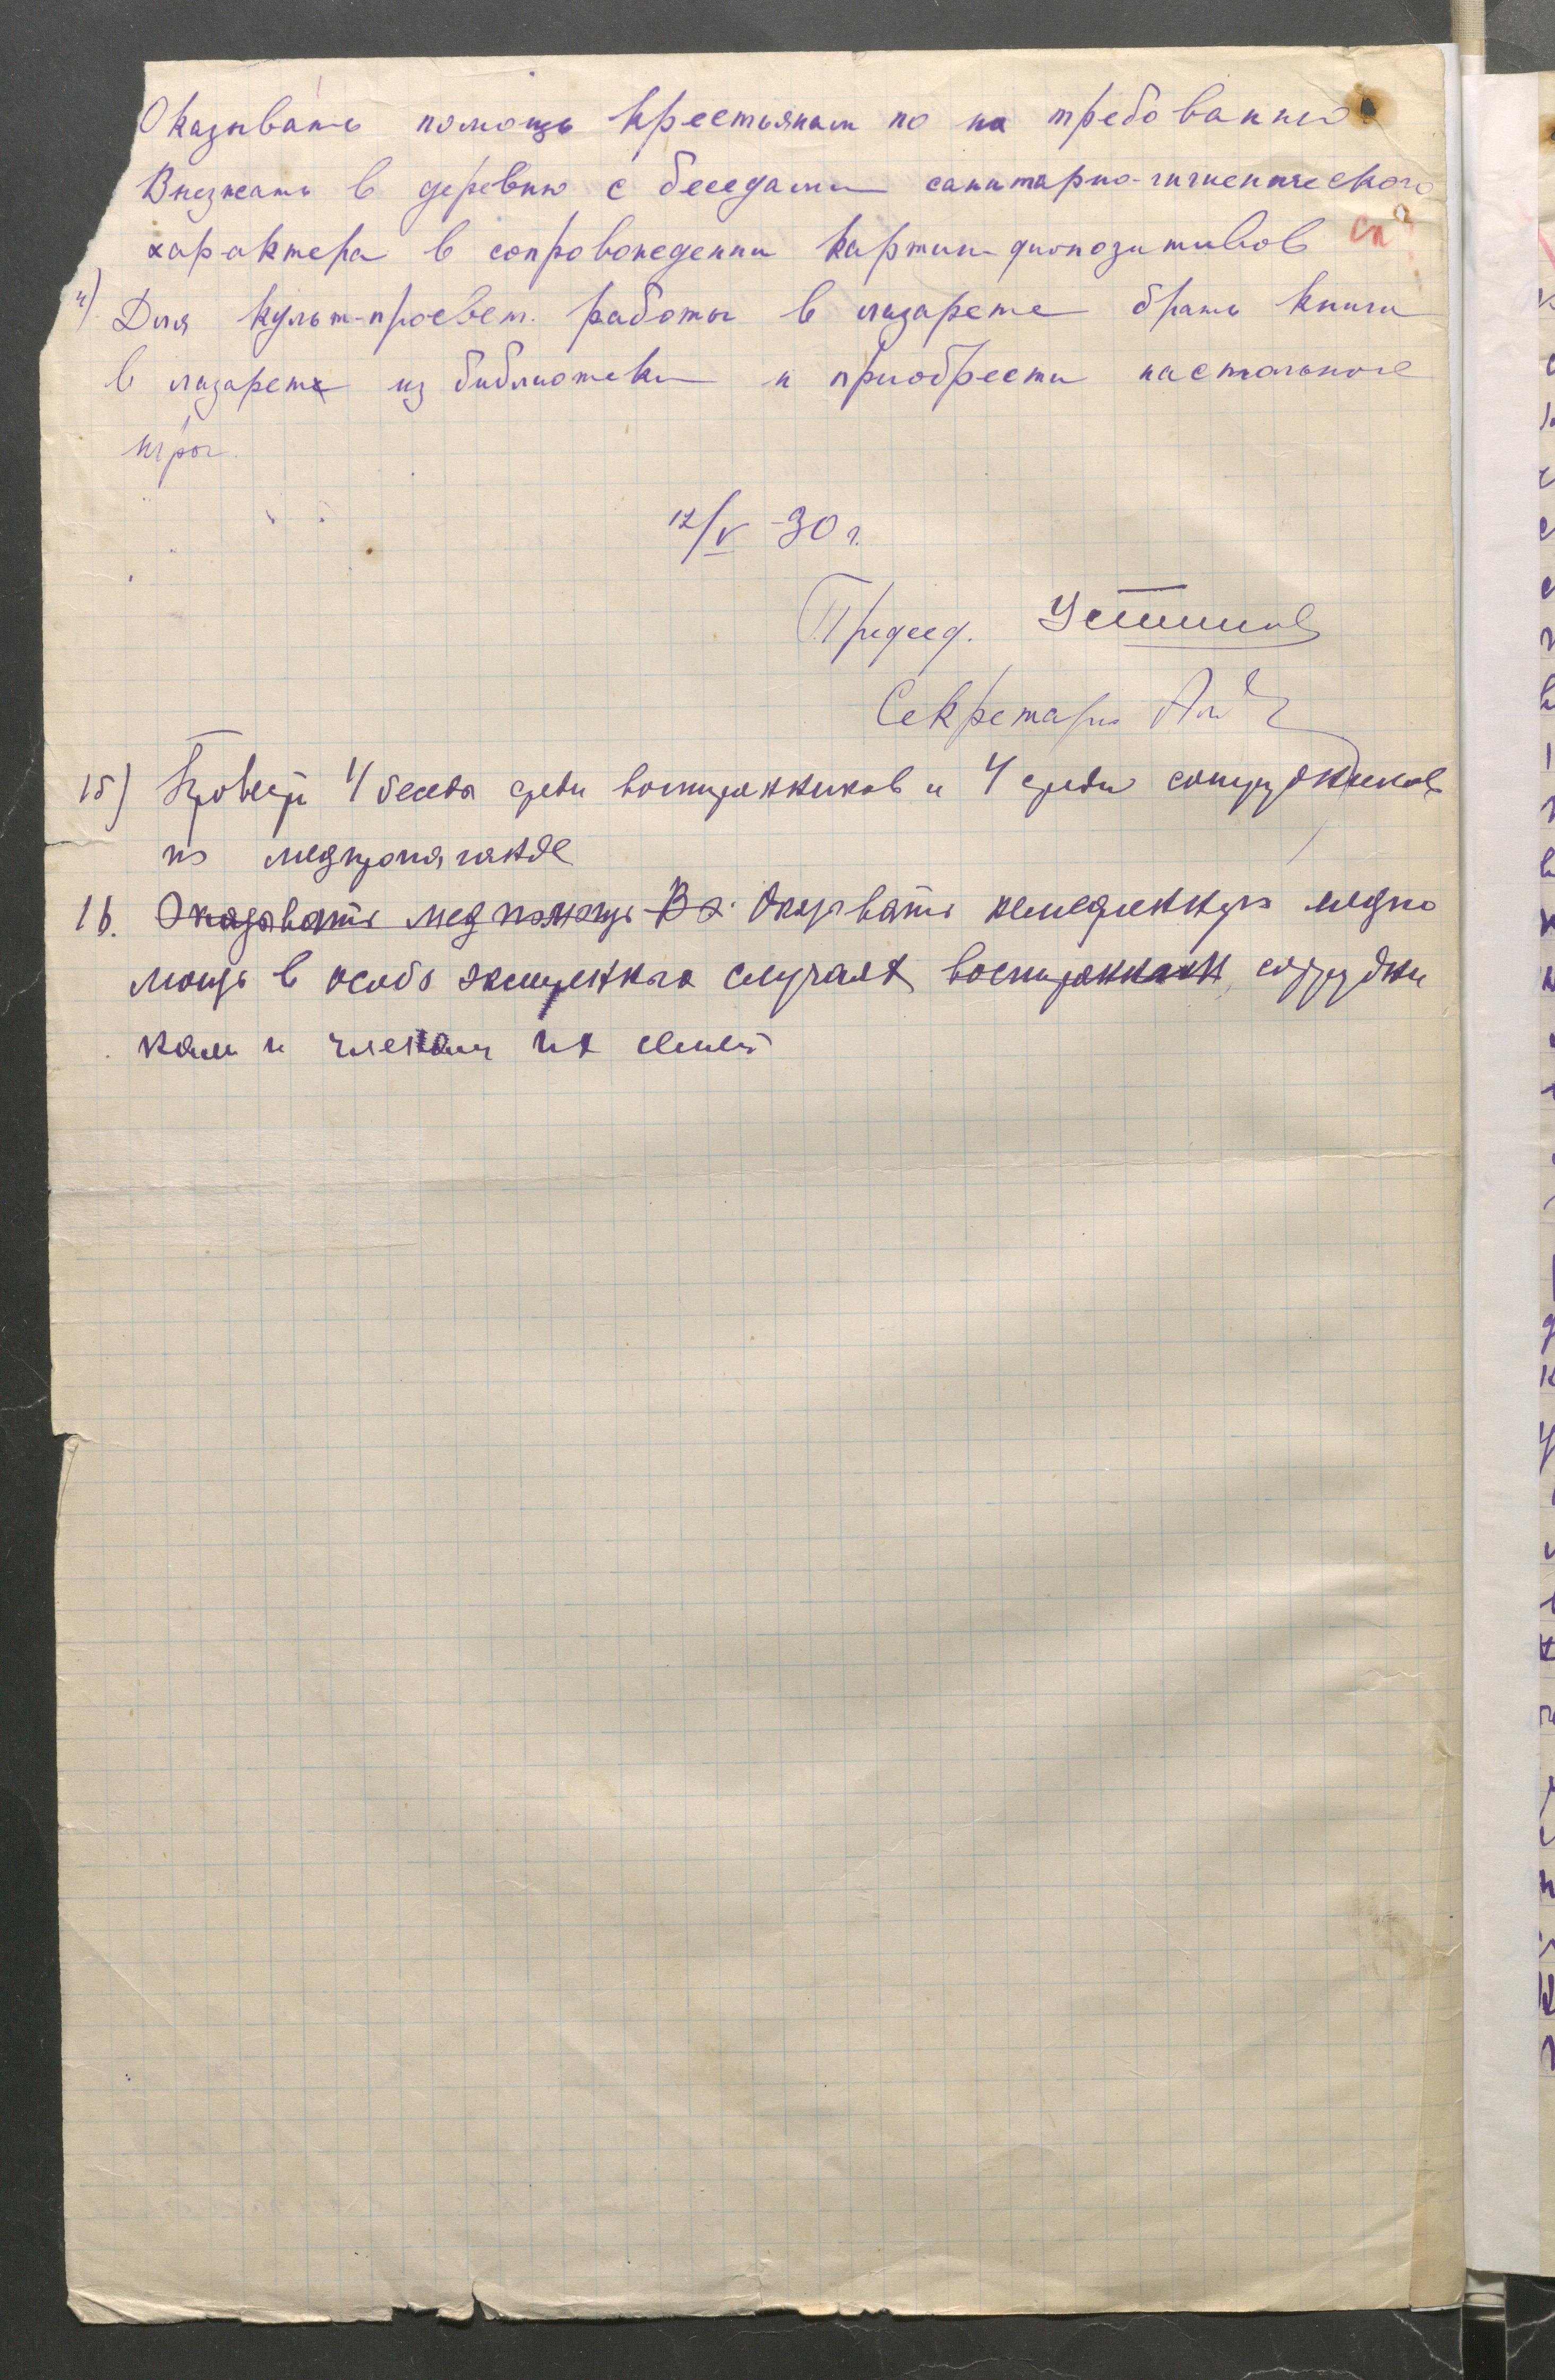 Оказывать помощь крестьянам по на требованию
Выезжать в деревню с беседами санитарно-гигиенического
характера в сопровождении картин-диопозитивов
4) Для культ-просвет. работы в лазарете брать книги
в лазарет из библиотеки и приобрести настольные
игры.
12/V -30 г.
Председ. Устинов
Секретарь
15) Провести 4 беседы среди воспитанников и 4 среди сотрудников
по медпропаганде
16. Оказывать медпомощь В э. Оказывать немедленную медпо
мощь в особо экстренных случаях воспитанникам, сотрудни
кам и членам их семей